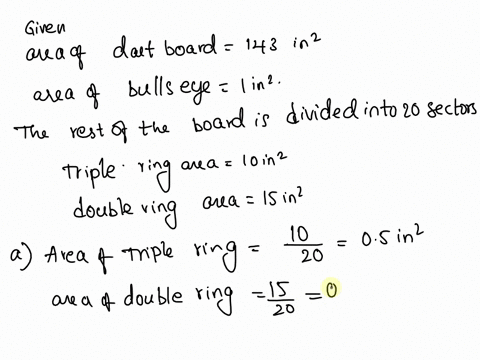 Given
area of dart board = 143 in²
area of bulls eye = 1 in².
The rest of the board is divided into 20 sectors
Triple ring area = 10 in²
double ring area = 15 in²
a) Area of Triple ring = 10/20 = 0.5 in²
area of double ring = 15/20 = 0